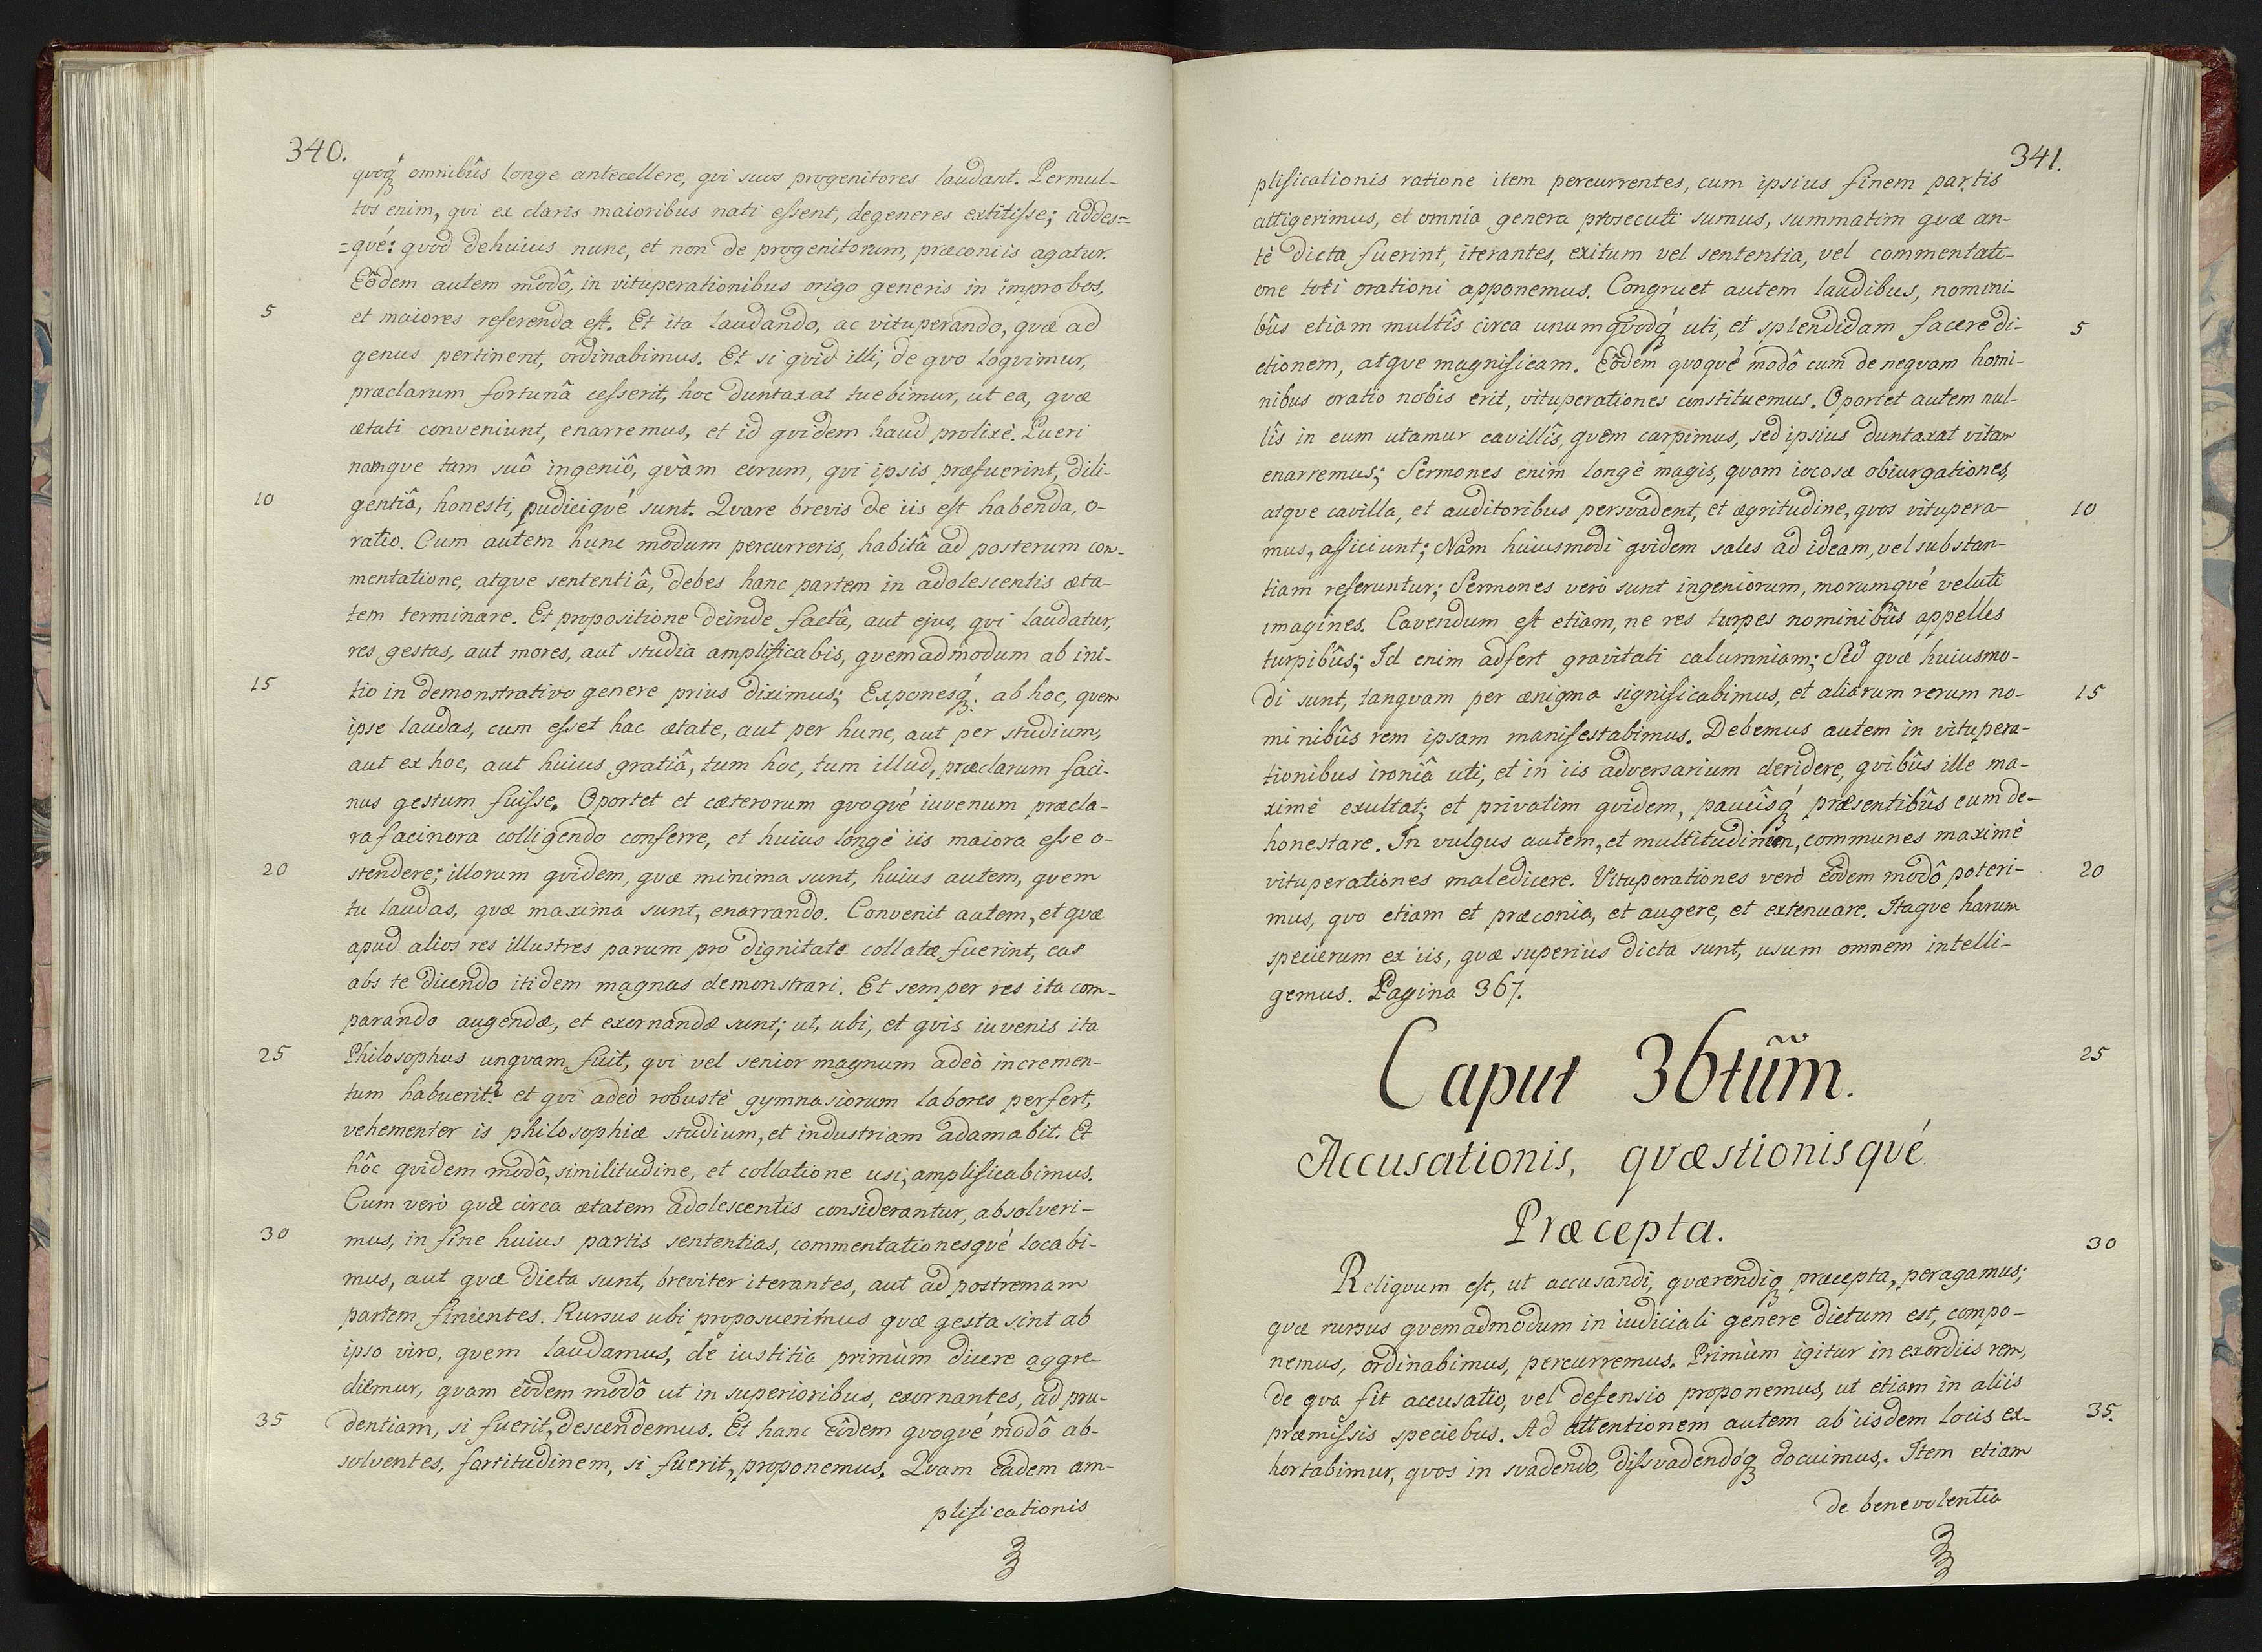 340.
quoq́ omnibûs longe antecellere, qvi suos progenitores laudant. Permul-
tos enim, qvi ex claris maioribus nati essent, degeneres extitisse; addes=
=qvé: qvod dehuius nunc, et non de progenitorum, præconiis agatur.
Eôdem autem modô, in vituperationibus origo generis in improbos,
5 et maiores referenda est. Et ita laudando, ac vituperando, qvæ ad
genus pertinent, ordinabimus. Et si qvid illi, de qvo loqvimur,
præclarum fortunâ cesserit, hoc duntaxat tuebimur, ut ea, qvæ
ætati conveniunt, enarremus, et id qvidem haud prolixè. Pueri
namqve tam suô ingeniô, qvàm eorum, qvi ipsis præfuerint, dili-
10 gentiâ, honesti, pudiciqvé sunt. Qvare brevis de iis est habenda, o-
ratio. Cum autem hunc modum percurreris, habitâ ad posterum com-
mentatione, atqve sententiâ, debes hanc partem in adolescentis æta-
tem terminare. Et propositione deinde factâ, aut ejus, qvi laudatur,
res gestas, aut mores, aut studia amplificabis, qvemadmodum ab ini-
15 tio in demonstrativo genere prius diximus; Exponesq́: ab hoc, quem
ipse laudas, cum esset hac ætate, aut per hunc, aut per studium,
aut ex hoc, aut huius gratiâ, tum hôc, tum illud, præclarum faci-
nus gestum fuisse. Oportet et cæterorum qvoqvé iuvenum præcla-
ra facinora colligendo conferre, et huius longè iis maiora esse o-
20 stendere; illorum qvidem, qvæ minima sunt, huius autem, qvem
tu laudas, qvæ maxima sunt, enarrando. Convenit autem, et qvæ
apud alios res illustres parum pro dignitate collatæ fuerint, eas
abs te dicendo itidem magnas demonstrari. Et semper res ita com-
parando augendæ, et exornandæ sunt; ut, ubi, et qvis iuvenis ita
25 Philosophus unqvam fuit, qvi vel senior magnum adeò incremen-
tum habuerit? et qvi adeò robustè gymnasiorum labores perfert,
vehementer is philosophiæ studium, et industriam adamabit. Et
hôc qvidem modô, similitudine, et collatione usi, amplificabimus.
Cum verò qvæ circa ætatem adolescentis considerantur, absolveri-
30 mus, in fine huius partis sententias, commentationesqvé locabi-
mus, aut qvæ dicta sunt, breviter iterantes, aut ad postremam
partem finientes. Rursus ubi proposuerimus qvæ gesta sint ab
ipso viro, qvem laudamus, de iustitia primùm dicere aggre-
diemur, qvam eôdem modô ut in superioribus, exornantes, ad pru-
35 dentiam, si fuerit, descendemus. Et hanc eôdem qvoqvé modô ab-
solventes, fortitudinem, si fuerit, proponemus. Qvam eadem am-
plificationis
341.
plificationis ratione item percurrentes, cum ipsius finem partis
attigerimus, et omnia genera prosecuti sumus, summatim qvæ an-
tè dicta fuerint, iterantes, exitum vel sententia, vel commentati-
one toti orationi apponemus. Congruet autem laudibus, nomini-
bûs etiam multîs circa unumqvodq́ uti, et splendidam facere di- 5
ctionem, atqve magnificam. Eôdem qvoqvé modô cum de neqvam homi-
nibus oratio nobis erit, vituperationes constituemus. Oportet autem nul-
lîs in eum utamur cavillîs, qvem carpimus, sed ipsius duntaxat vitam
enarremus; Sermones enim longè magis, qvam iocosæ obiurgationes,
atqve cavilla, et auditoribus persvadent, et ægritudine, qvos vitupera- 10
mus, afficiunt; Nam huiusmodi qvidem sales ad ideam, vel substan-
tiam referuntur; Sermones verò sunt ingeniorum, morumqvé veluti
imagines. Cavendum est etiam, ne res turpes nominibûs appelles
turpibûs; Id enim adfert gravitati calumniam; Sed qvæ huiusmo-
di sunt, tanqvam per ænigma significabimus, et aliarum rerum no- 15
minibûs rem ipsam manifestabimus. Debemus autem in vitupera-
tionibus ironiâ uti, et in iis adversarium deridere, qvibûs ille ma-
ximè exultat; et privatim qvidem, paucîsq́ præsentibûs eum de-
honestare. In vulgus autem, et multitudinem, communes maximè
vituperationes maledicere. Vituperationes verò eôdem modô poteri- 20
mus, qvo etiam et præconia, et augere, et extenuare. Itaqve harum
specierum ex iis, qvæ superius dicta sunt, usum omnem intelli-
gemus. Pagina 367.
Caput 36tum. 25
Accusationis, qvæstionisqvé
Præcepta.
30
Reliqvum est, ut accusandi, qværendiq præcepta, peragamus;
qvæ rursus qvemadmodum in iudiciali genere dictum est, compo-
nemus, ordinabimus, percurremus. Primùm igitur in exordiis rem,
de qva fit accusatio, vel defensio proponemus, ut etiam in aliis
præmissis speciebus. Ad attentionem autem ab iisdem locis ex- 35.
hortabimur, qvos in svadendo, dissvadendóq docuimus. Item etiam
de benevolentia